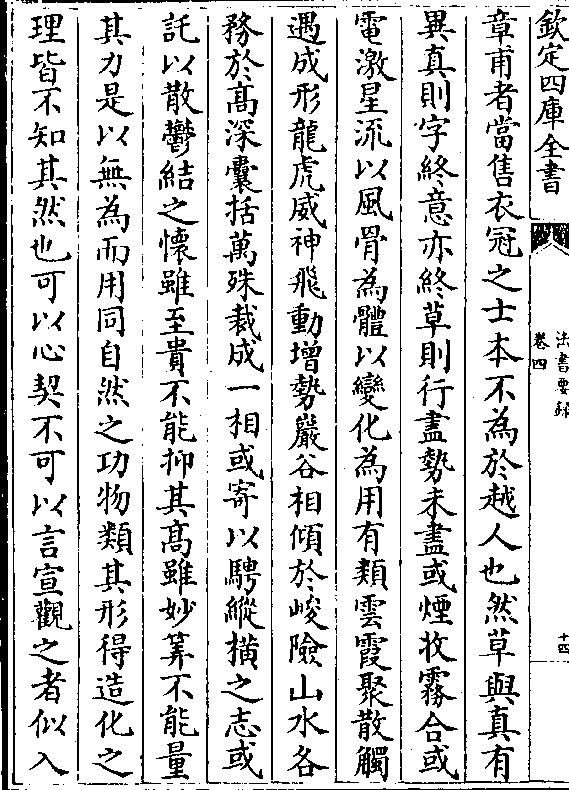 欽定四庫全書
法書要錄
卷四
十四
章甫者當售衣冠之士本不為於越人也然草與真有
異真則字終意亦終草則行盡勢未盡或煙收霧合或
電激星流以風骨為體以變化為用有類雲霞聚散觸
遇成形龍虎威神飛動增勢巖谷相傾於峻險山水各
務於高深囊括萬殊裁成一相或寄以騁縱橫之志或
託以散鬱結之懷雖至貴不能抑其高雖妙筭不能量
其力是以無為而用同自然之功物類其形得造化之
理皆不知其然也可以心契不可以言宣觀之者似入